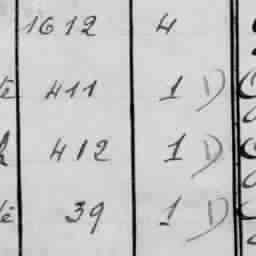 1612 4
411 1 D
412 1 D
39 1 D